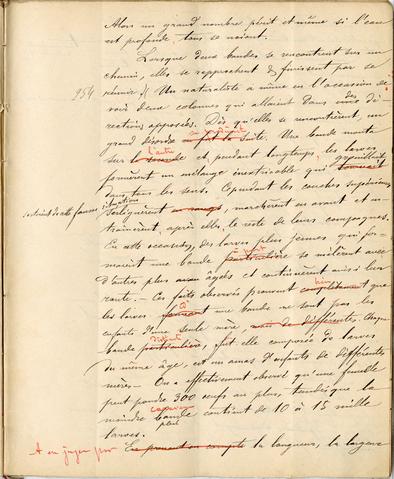 Alors un grand nombre périt et même si l'eau
est profonde, tous se noient.
Lorsque deux bandes se rencontrent sur un
chemin, elles se rapprochent & finissent par se
réunir. Un naturaliste a même eu l'occasion de
954
voir deux colonnes qui allaient dans des di-
rections opposées. Dès qu'elles se rencontrèrent, un
grand désordre se produisit
de suite. Une bande monta
sur l'autre et pendant longtemps, les larves
formèrent un mélange inextricable qui grouillait
dans tous les sens. Cependant les couches supérieures
situation
s'alignèrent en rangs, marchèrent en avant et en-
traînèrent, après elles, le reste de leurs compagnes.
En cette occasion, des larves plus jeunes qui for-
maient une bande à part se mêlèrent avec
d'autres plus âgées et continuèrent ainsi leur
route. — Ces faits observés prouvent bien que
les larves d'une bande ne sont pas les
enfants d'une seule mère, Chaque
bande distincte, fut elle composée de larves
du même âge, est un amas d'enfants de différentes
mères. — On a effectivement observé qu'une femelle
peut pondre 300 œufs au plus, tandis que la
moindre bande contient de 10 à 15 mille
larves.
A en juger par En prenant en compte la longueur, la largeur